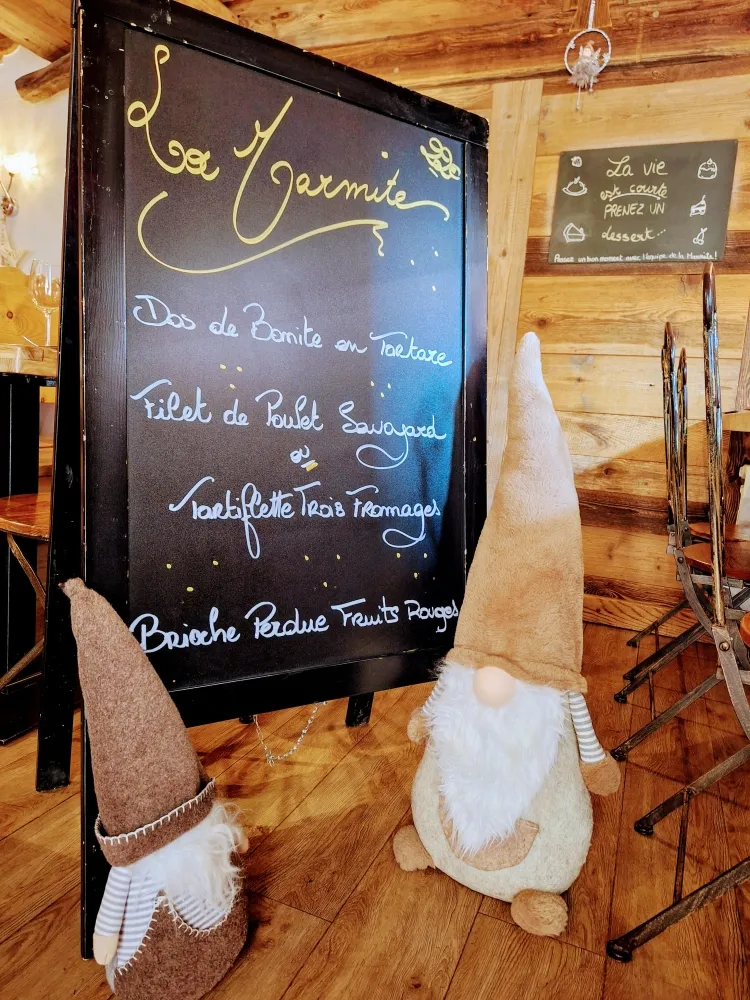 La Marmite
Dos de Bonite en Tartare
Filet de Poulet Savoyard
ou
Tartiflette Trois Fromages
Brioche Perdue Fruits Rouges
La vie
est courte
PRENEZ UN
dessert...
Passez un bon moment avec l'équipe de la Marmite!